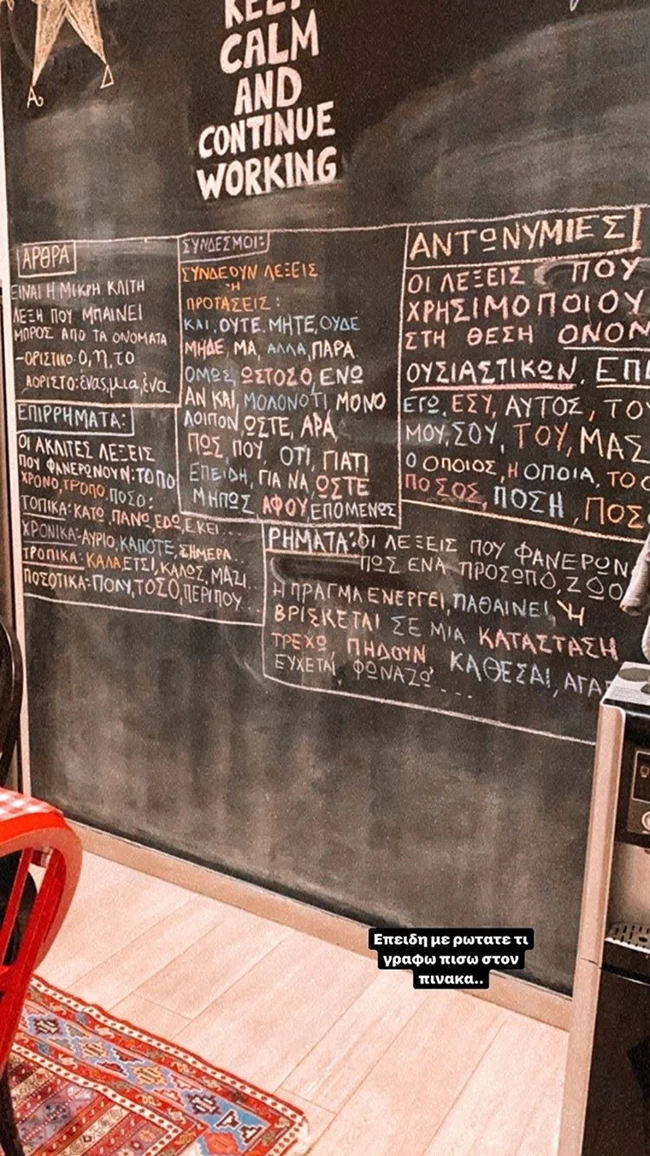 KEEP
CALM
AND
CONTINUE
WORKING
ΑΡΘΡΑ
ΕΙΝΑΙ Η ΜΙΚΡΗ ΚΛΙΤΗ
ΛΕΞΗ ΠΟΥ ΜΠΑΙΝΕΙ
ΜΠΡΟΣ ΑΠΟ ΤΑ ΟΝΟΜΑΤΑ
-ΟΡΙΣΤΙΚΟ: Ο, η, το
ΑΟΡΙΣΤΟ: ένας, μια, ένα
ΕΠΙΡΡΗΜΑΤΑ:
ΟΙ ΑΚΛΙΤΕΣ ΛΕΞΕΙΣ
ΠΟΥ ΦΑΝΕΡΩΝΟΥΝ: ΤΟΠΟ
ΧΡΟΝΟ, ΤΡΟΠΟ, ΠΟΣΟ:
ΤΟΠΙΚΑ: ΚΑΤΩ, ΠΑΝΩ, ΕΔΩ, ΕΚΕΙ...
ΧΡΟΝΙΚΑ: ΑΥΡΙΟ, ΚΑΠΟΤΕ, ΣΗΜΕΡΑ...
ΤΡΟΠΙΚΑ: ΚΑΛΑ, ΕΤΣΙ, ΚΑΛΩΣ, ΜΑΖΙ..
ΠΟΣΟΤΙΚΑ: ΠΟΛΥ, ΤΟΣΟ, ΠΕΡΙΠΟΥ...
ΣΥΝΔΕΣΜΟΙ:
ΣΥΝΔΕΟΥΝ ΛΕΞΕΙΣ
Ή
ΠΡΟΤΑΣΕΙΣ:
ΚΑΙ, ΟΥΤΕ, ΜΗΤΕ, ΟΥΔΕ
ΜΗΔΕ, ΜΑ, ΑΛΛΑ, ΠΑΡΑ
ΟΜΩΣ, ΩΣΤΟΣΟ, ΕΝΩ
ΑΝ ΚΑΙ, ΜΟΛΟΝΟΤΙ ΜΟΝΟ
ΛΟΙΠΟΝ, ΩΣΤΕ, ΑΡΑ,
ΠΩΣ, ΠΟΥ, ΟΤΙ, ΓΙΑΤΙ
ΕΠΕΙΔΗ, ΓΙΑ ΝΑ, ΩΣΤΕ
ΜΗΠΩΣ ΑΦΟΥ, ΕΠΟΜΕΝΩΣ
ΑΝΤΩΝΥΜΙΕΣ
ΟΙ ΛΕΞΕΙΣ ΠΟΥ
ΧΡΗΣΙΜΟΠΟΙΟΥ
ΣΤΗ ΘΕΣΗ ΟΝΟΜ
ΟΥΣΙΑΣΤΙΚΩΝ, ΕΠΙ
ΕΓΩ, ΕΣΥ, ΑΥΤΟΣ, ΤΟΥ
ΜΟΥ, ΣΟΥ, ΤΟΥ, ΜΑΣ
Ο ΟΠΟΙΟΣ, Η ΟΠΟΙΑ, ΤΟ Ο
ΠΟΣΟΣ, ΠΟΣΗ, ΠΟΣ
ΡΗΜΑΤΑ: ΟΙ ΛΕΞΕΙΣ ΠΟΥ ΦΑΝΕΡΩΝ
ΠΩΣ ΕΝΑ ΠΡΟΣΩΠΟ, ΖΩΟ
Ή ΠΡΑΓΜΑ ΕΝΕΡΓΕΙ, ΠΑΘΑΙΝΕΙ, Ή
ΒΡΙΣΚΕΤΑΙ ΣΕ ΜΙΑ ΚΑΤΑΣΤΑΣΗ
ΤΡΕΧΩ, ΠΗΔΟΥΝ, ΚΑΘΕΣΑΙ, ΑΓΑΠ
ΕΥΧΕΤΑΙ, ΦΩΝΑΖΩ...
Επειδη με ρωτατε τι
γραφω πισω στον
πινακα..